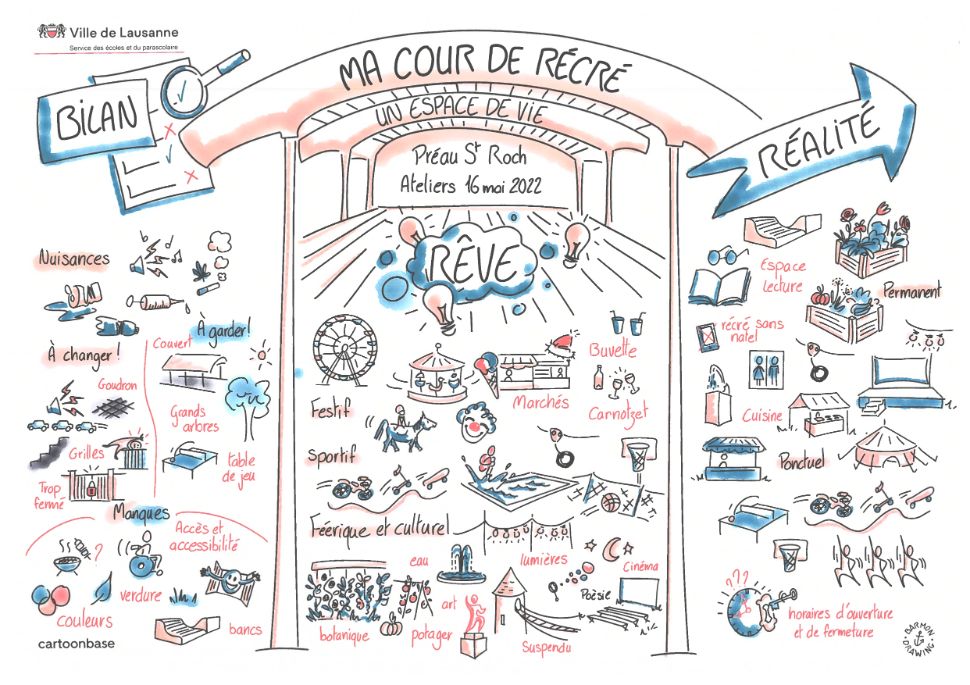 Ville de Lausanne
Service des écoles et du parascolaire
BILAN
MA COUR DE RÉCRÉ
UN ESPACE DE VIE
Préau St Roch
Ateliers 16 mai 2022
RÉALITÉ
RÊVE
Nuisances
À garder !
À changer !
Couvert
Goudron
Grands
arbres
Grilles
Trop
fermé
table
de jeu
Manques
Accès et
accessibilité
?
verdure
couleurs
bancs
cartoonbase
Buvette
Marchés
Carnotzet
Festif
Sportif
Féérique et culturel
eau
lumières
Cinéma
Poésie
art
botanique
potager
Suspendu
Espace
Lecture
Permanent
récré sans
natel
Cuisine
Ponctuel
???
horaires d'ouverture
et de fermeture
DARMON
DRAWING